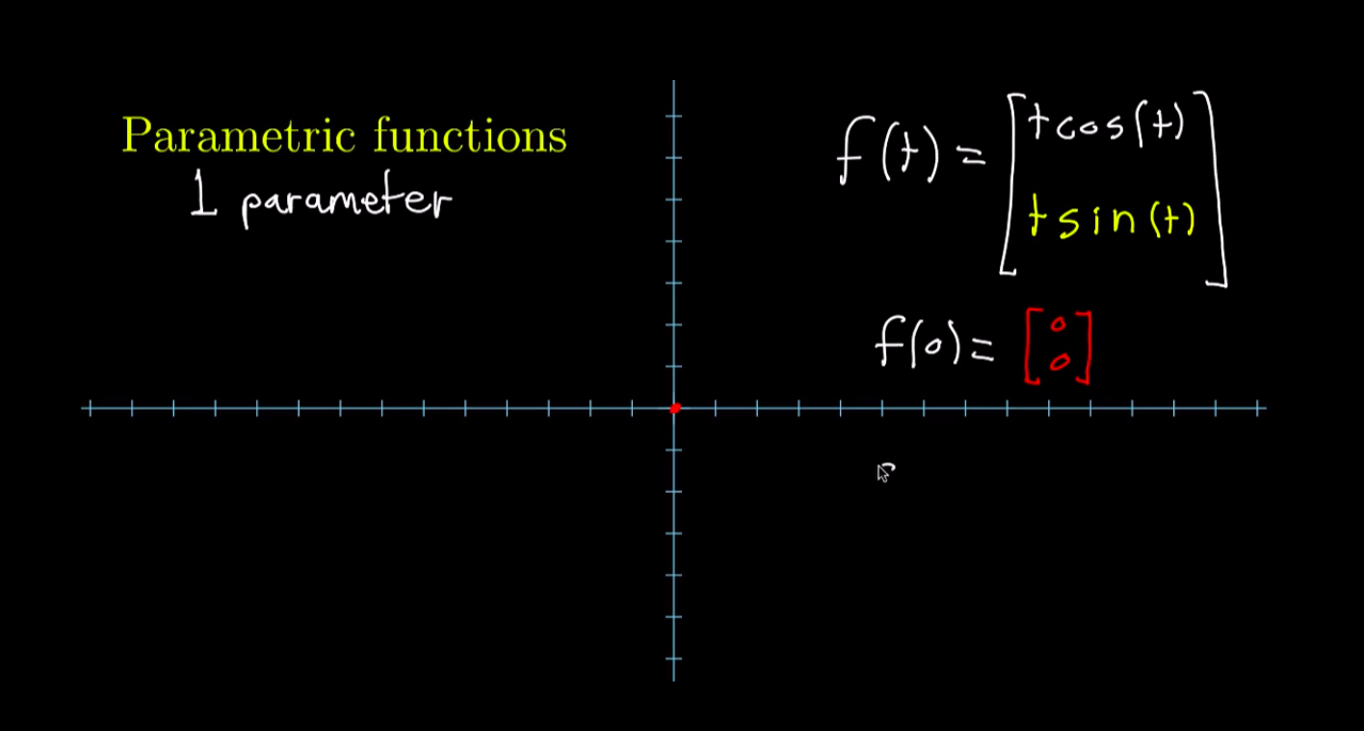 Parametric functions
1 parameter
f(t) = [t cos(t)
t sin(t)]
f(0) = [0
0]